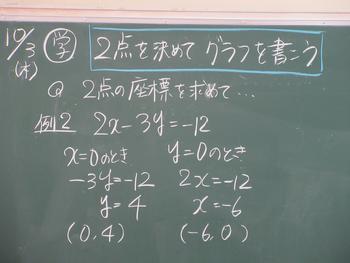 10/3 (木) 学 2点を求めて グラフを書こう
Q 2点の座標を求めて…
例2 2x-3y=-12
x=0のとき y=0のとき
-3y=-12 2x=-12
y=4 x=-6
(0,4) (-6,0)